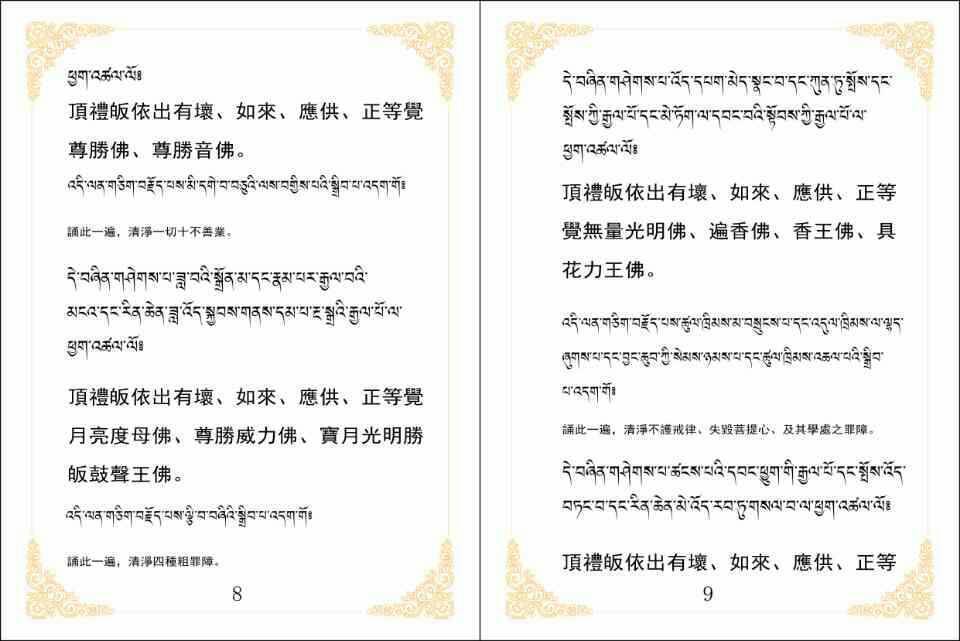 ཕྱག་འཚལ་ལོ༔
頂禮皈依出有壞、如來、應供、正等覺
尊勝佛、尊勝音佛。
འདི་ལན་གཅིག་བརྗོད་པས་མི་དགེ་བ་བཅུའི་ལས་བགྱིས་པའི་སྒྲིབ་པ་འདག་གོ༔
誦此一遍，清淨一切十不善業。
དེ་བཞིན་གཤེགས་པ་ཟླ་བའི་སྒྲོན་མ་དང་རྣམ་པར་རྒྱལ་བའི་
མངའ་དང་རིན་ཆེན་ཟླ་འོད་སྐྱབས་གནས་དམ་པ་རྔ་སྒྲའི་རྒྱལ་པོ་ལ་
ཕྱག་འཚལ་ལོ༔
頂禮皈依出有壞、如來、應供、正等覺
月亮度母佛、尊勝威力佛、寶月光明勝
皈鼓聲王佛。
འདི་ལན་གཅིག་བརྗོད་པས་ལྕི་བ་བཞིའི་སྒྲིབ་པ་འདག་གོ༔
誦此一遍，清淨四種粗罪障。
8
དེ་བཞིན་གཤེགས་པ་འོད་དཔག་མེད་སྣང་བ་དང་ཀུན་ཏུ་སྤོས་དང་
སྤོས་ཀྱི་རྒྱལ་པོ་དང་མེ་ཏོག་ལ་དབང་བའི་སྟོབས་ཀྱི་རྒྱལ་པོ་ལ་
ཕྱག་འཚལ་ལོ༔
頂禮皈依出有壞、如來、應供、正等
覺無量光明佛、遍香佛、香王佛、具
花力王佛。
འདི་ལན་གཅིག་བརྗོད་པས་ཚུལ་ཁྲིམས་མ་བསྲུངས་པ་དང་འདུལ་ཁྲིམས་ལ་ལྷད་
ཞུགས་པ་དང་བྱང་ཆུབ་ཀྱི་སེམས་ཉམས་པ་དང་ཚུལ་ཁྲིམས་འཆལ་པའི་སྒྲིབ་
པ་འདག་གོ༔
誦此一遍，清淨不護戒律、失毀菩提心、及其學處之罪障。
དེ་བཞིན་གཤེགས་པ་ཚངས་པའི་དབང་ཕྱུག་གི་རྒྱལ་པོ་དང་སྤོས་འོད་
བཏང་བ་དང་རིན་ཆེན་མེ་འོད་རབ་ཏུ་གསལ་བ་ལ་ཕྱག་འཚལ་ལོ༔
頂禮皈依出有壞、如來、應供、正等
9